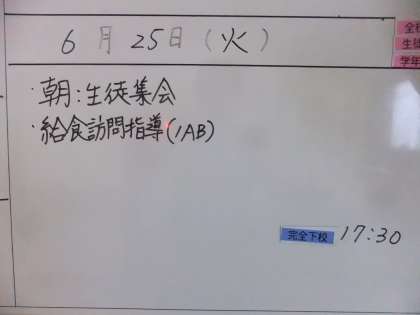 6月25日(火)
全校
生徒
学年
・朝:生徒集会
・給食訪問指導(1AB)
完全下校 17:30